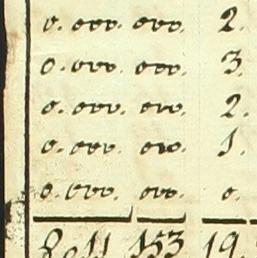 0. 000. 000. 2.
0. 000. 000. 3.
0. 000. 000. 2.
0. 000. 000. 1.
0. 000. 000. 0.
153 19.